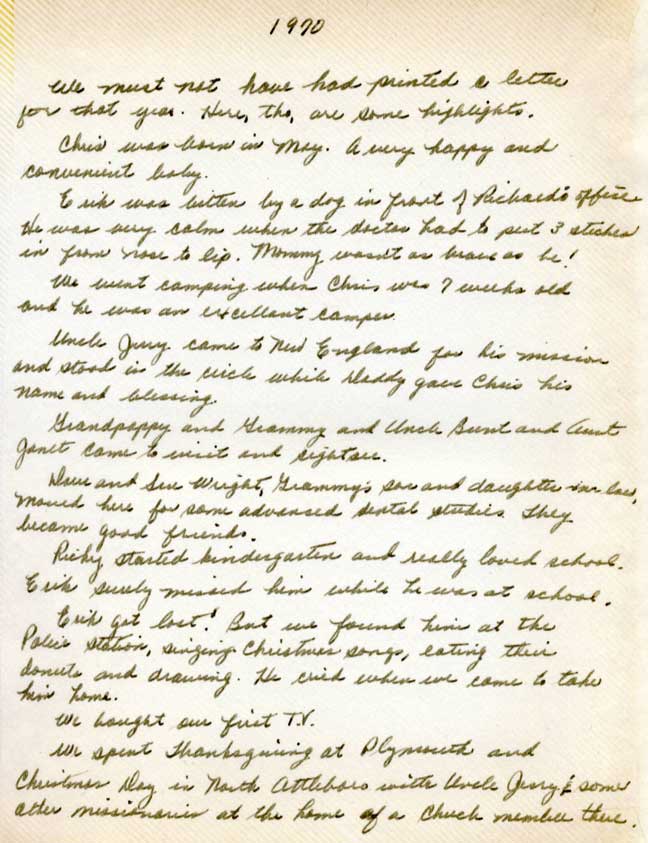 1970
We must not have had printed a letter
for that year. Here, tho, are some highlights.
Chris was born in May. A very happy and
convenient baby.
Erik was bitten by a dog in front of Richard's office.
He was very calm when the doctor had to put 3 stiches
in from nose to lip. Mommy wasn't as brave as he!
We went camping when Chris was 7 weeks old
and he was an excellant camper.
Uncle Jerry came to New England for his mission
and stood in the circle while Daddy gave Chris his
name and blessing.
Grandpappy and Grammy and Uncle Burt and Aunt
Janet came to visit and sightsee.
Dave and Sue Wright, Grammy's son and daughter-in-law,
moved here for some advanced dental studies. They
became good friends.
Ricky started kindergarten and really loved school.
Erik surely missed him while he was at school.
Erik got lost! But we found him at the
Police station, singing Christmas songs, eating their
donuts and drawing. He cried when we came to take
him home.
We bought our first T.V.
We spent Thanksgiving at Plymouth and
Christmas Day in North Attleboro with Uncle Jerry & some
other missionaries at the home of a Church member there.